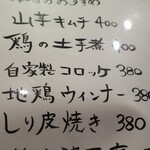 山芋キムチ 400
鶏の土手煮 400
自家製コロッケ 380
地鶏ウィンナー 380
しり皮焼き 380